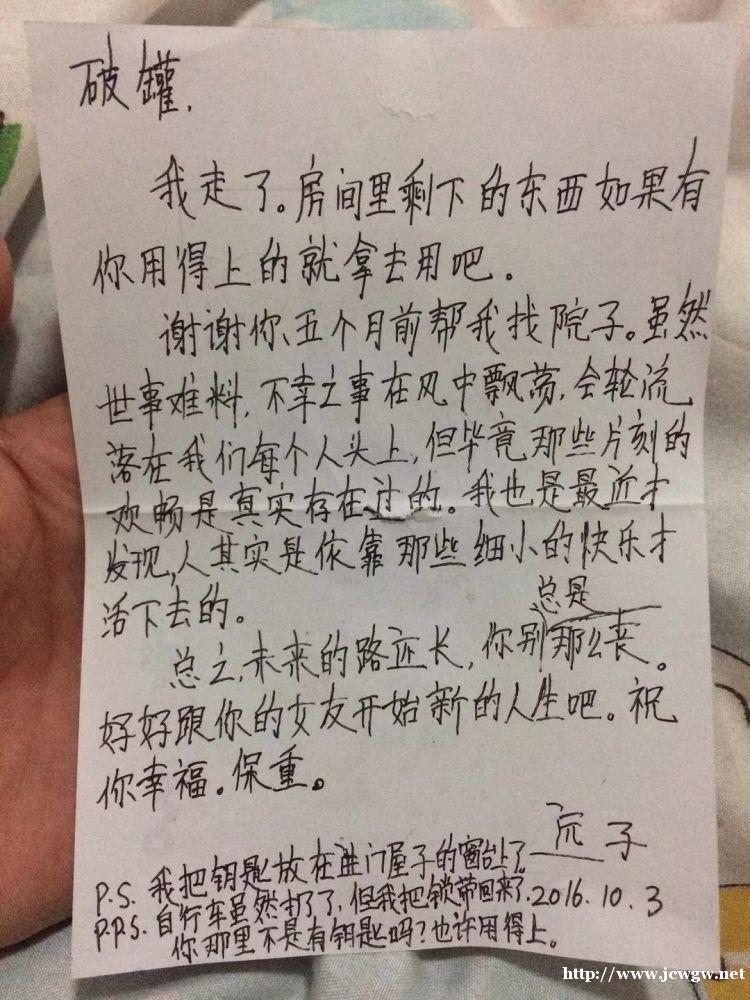 破罐.
我走了。房间里剩下的东西如果有
你用得上的就拿去用吧。
谢谢你、五个月前帮我找院子。虽然
世事难料,不幸之事在风中飘荡,会轮流
落在我们每个人头上,但毕竟那些片刻的
欢畅是真实存在过的。我也是最近才
发现,人其实是依靠那些细小的快乐才
活下去的。
总之,未来的路还长,你别总是那么丧。
好好跟你的女友开始新的人生吧。祝
你幸福。保重。
子
P.S. 我把钥匙放在进门屋子的窗台上了
2016.10.3
P.P.S. 自行车虽然打了,但我把锁带回来了.
你那里不是有钥匙吗?也许用得上。
http://www.jcwgw.net